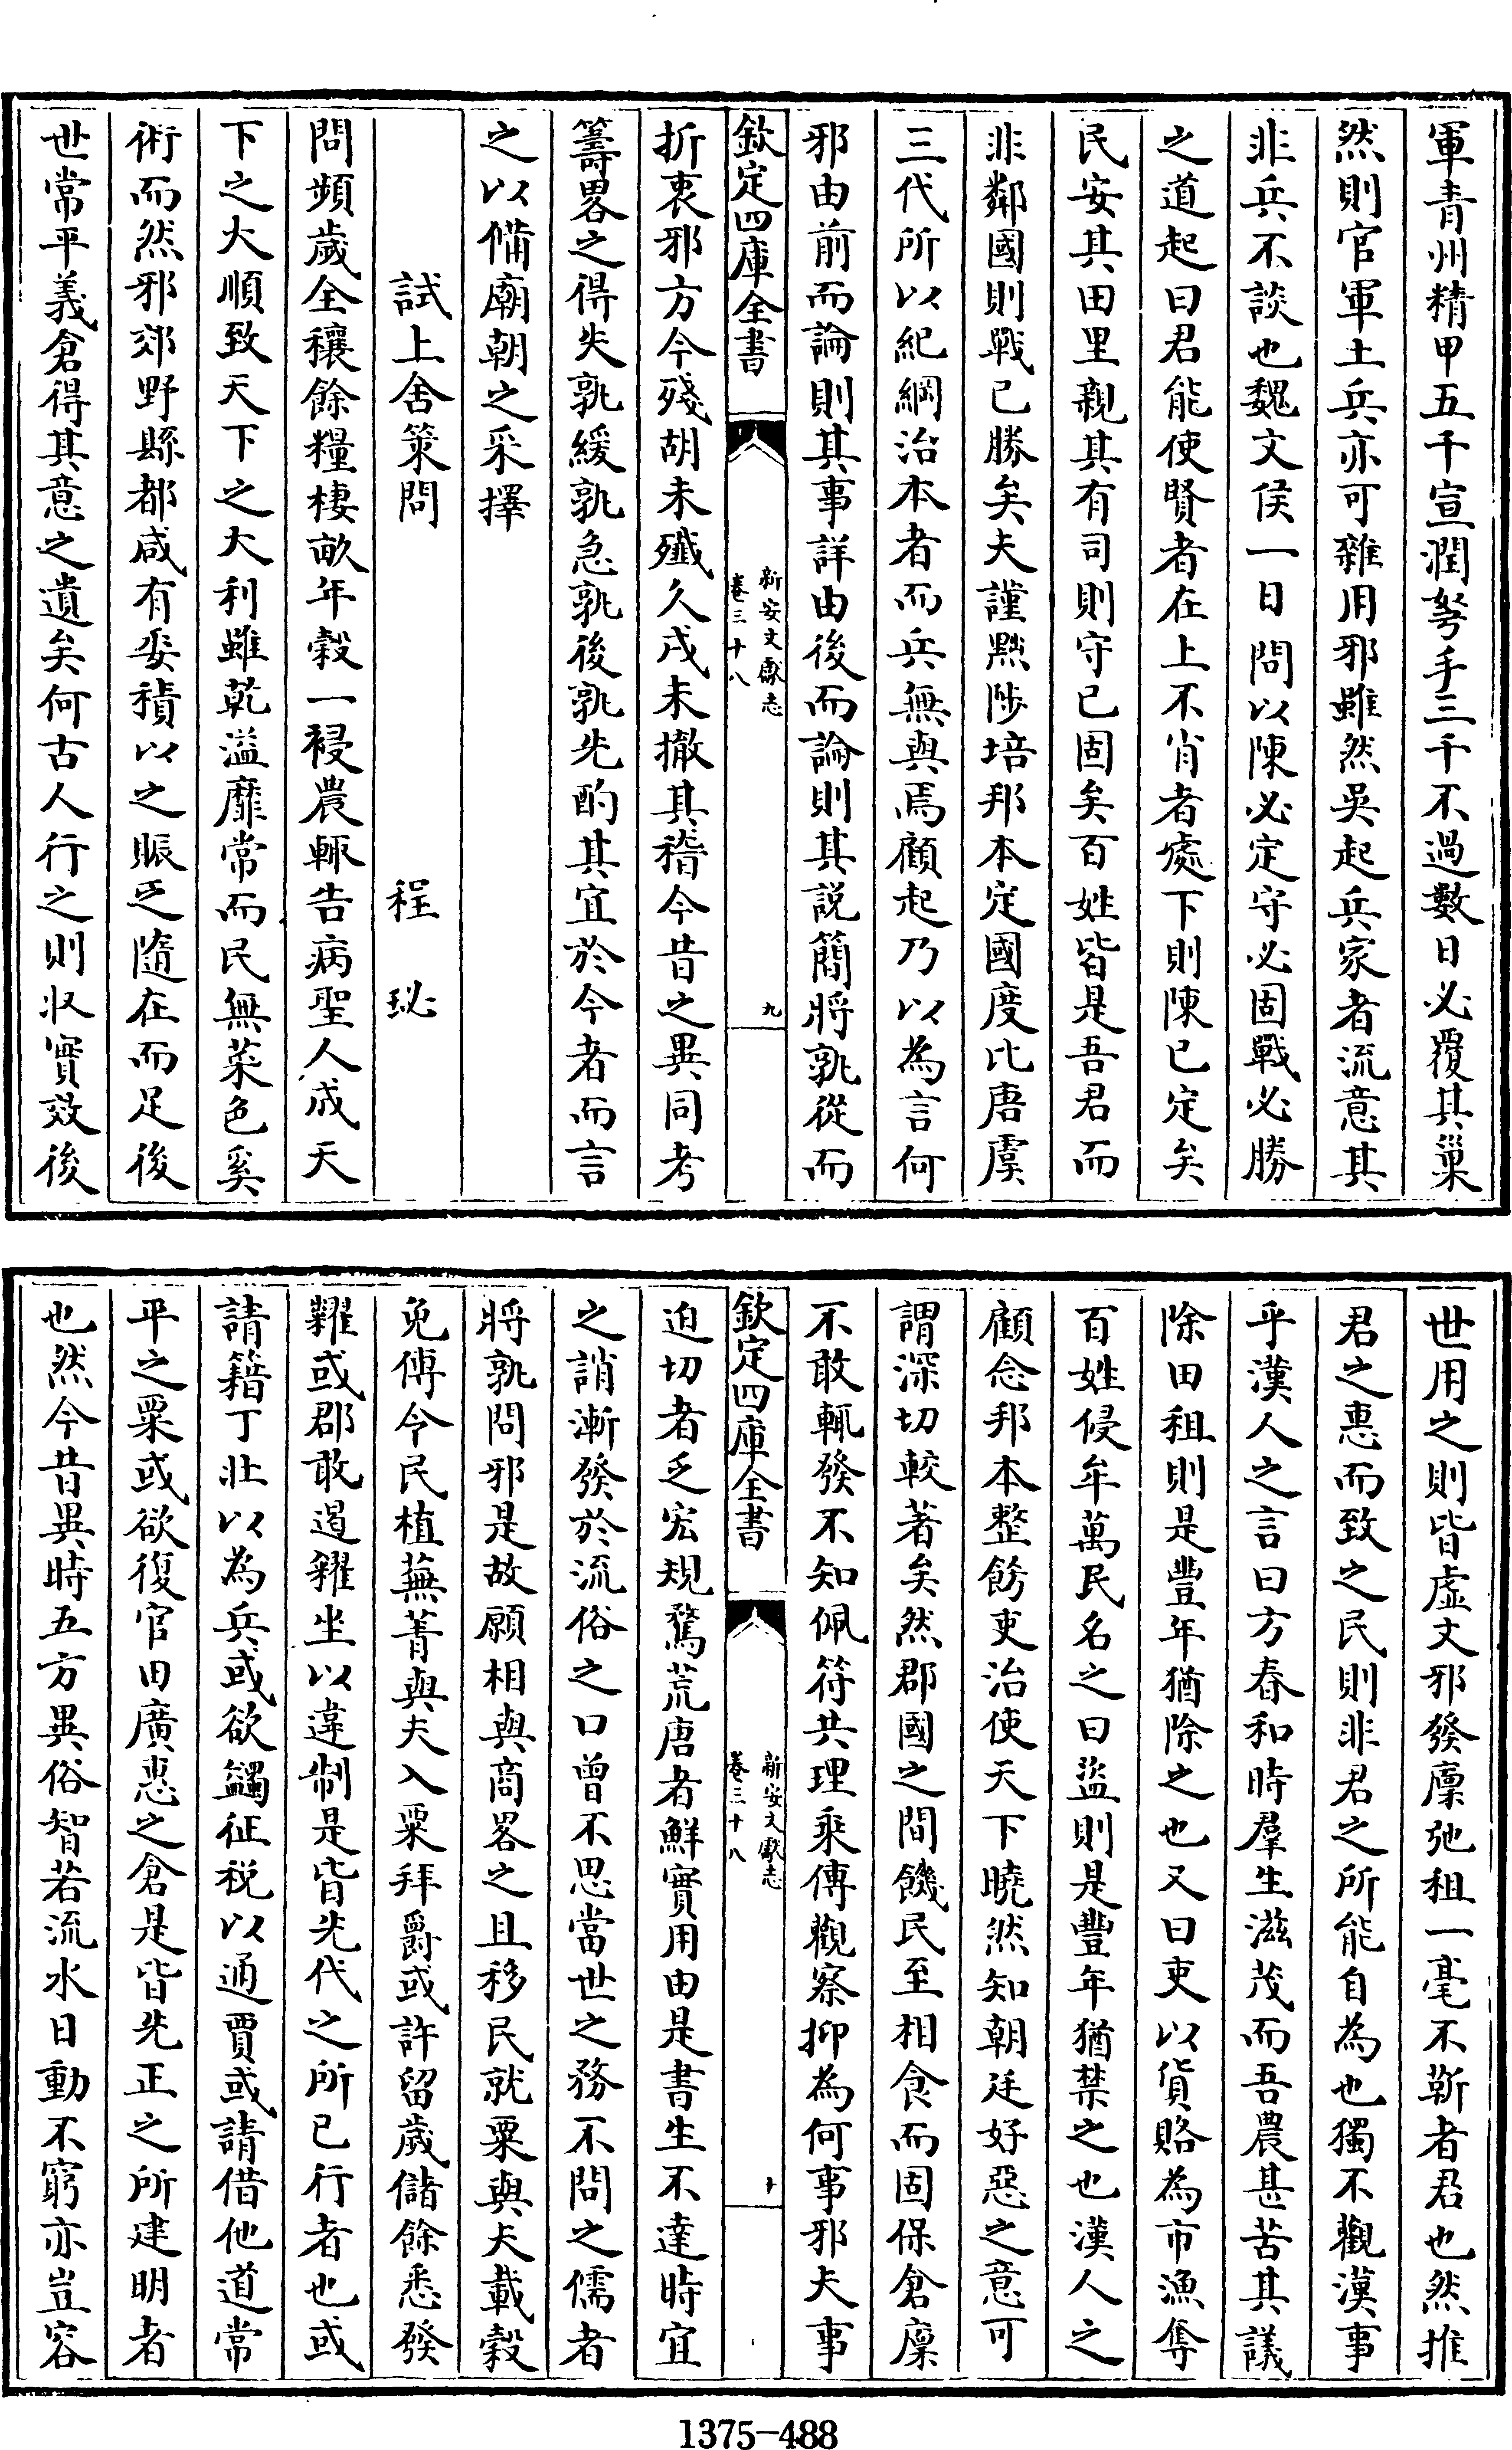 軍青州精甲五千宣潤弩手三千不過數日必覆其巢
然則官軍土兵亦可雜用邪雖然吳起兵家者流意其
非兵不談也魏文侯一日問以陳必定守必固戰必勝
之道起曰君能使賢者在上不肖者處下則陳已定矣
民安其田里親其有司則守已固矣百姓皆是吾君而
非鄰國則戰已勝矣夫謹黜陟培邦本定國度比唐虞
三代所以紀綱治本者而兵無與焉顧起乃以為言何
邪由前而論則其事詳由後而論則其說簡將孰從而
欽定四庫全書
新安文獻志
卷三十八
九
折衷邪方今殘胡未殲久戍未撤其稽今昔之異同考
籌畧之得失孰緩孰急孰後孰先酌其宜於今者而言
之以備廟朝之采擇
試上舍策問
程珌
問頻歲全穰餘糧棲畝年穀一祲農輒告病聖人成天
下之大順致天下之大利雖乾溢靡常而民無菜色奚
術而然邪郊野縣都咸有委積以之賑乏隨在而足後
世常平義倉得其意之遺矣何古人行之則收實效後
世用之則皆虛文邪發廩弛租一毫不靳者君也然推
君之惠而致之民則非君之所能自為也獨不觀漢事
乎漢人之言曰方春和時羣生滋茂而吾農甚苦其議
除田租則是豐年猶除之也又曰吏以貨賂為市漁奪
百姓侵牟萬民名之曰盜則是豐年猶禁之也漢人之
顧念邦本整飭吏治使天下曉然知朝廷好惡之意可
謂深切較著矣然郡國之間饑民至相食而固保倉廩
不敢輒發不知佩符共理乘傳觀察抑為何事邪夫事
欽定四庫全書
新安文獻志
卷三十八
十
迫切者乏宏規騖荒唐者鮮實用由是書生不達時宜
之誚漸發於流俗之口曾不思當世之務不問之儒者
將孰問邪是故願相與商畧之且移民就粟與夫載穀
免傅令民植蕪菁與夫入粟拜爵或許留歲儲餘悉發
糶或郡敢遏糴坐以違制是皆先代之所已行者也或
請籍丁壯以為兵或欲蠲征稅以通賈或請借他道常
平之粟或欲復官田廣惠之倉是皆先正之所建明者
也然今昔異時五方異俗智若流水日動不窮亦豈容
1375-488